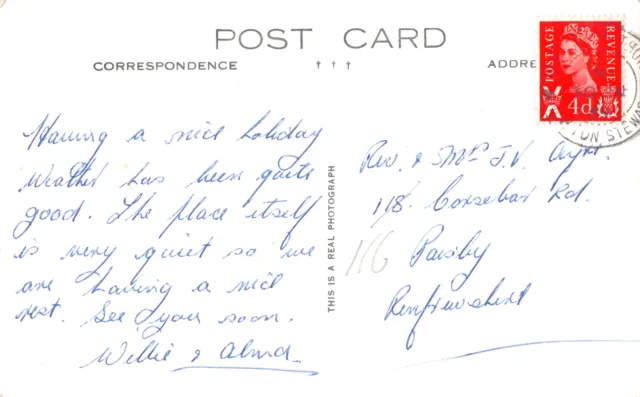 POST CARD
CORRESPONDENCE
† † †
ADDRE
POSTAGE
REVENUE
4d
TON STEWA
Having a nice holiday
Weather has been quite
good. The place itself
is very quiet so we
are having a nice
rest. See you soon.
Willie & Alma.
THIS IS A REAL PHOTOGRAPH
Rev. & Mrs J.V.
118 Corsebar Rd.
116
Paisley
Renfrewshire